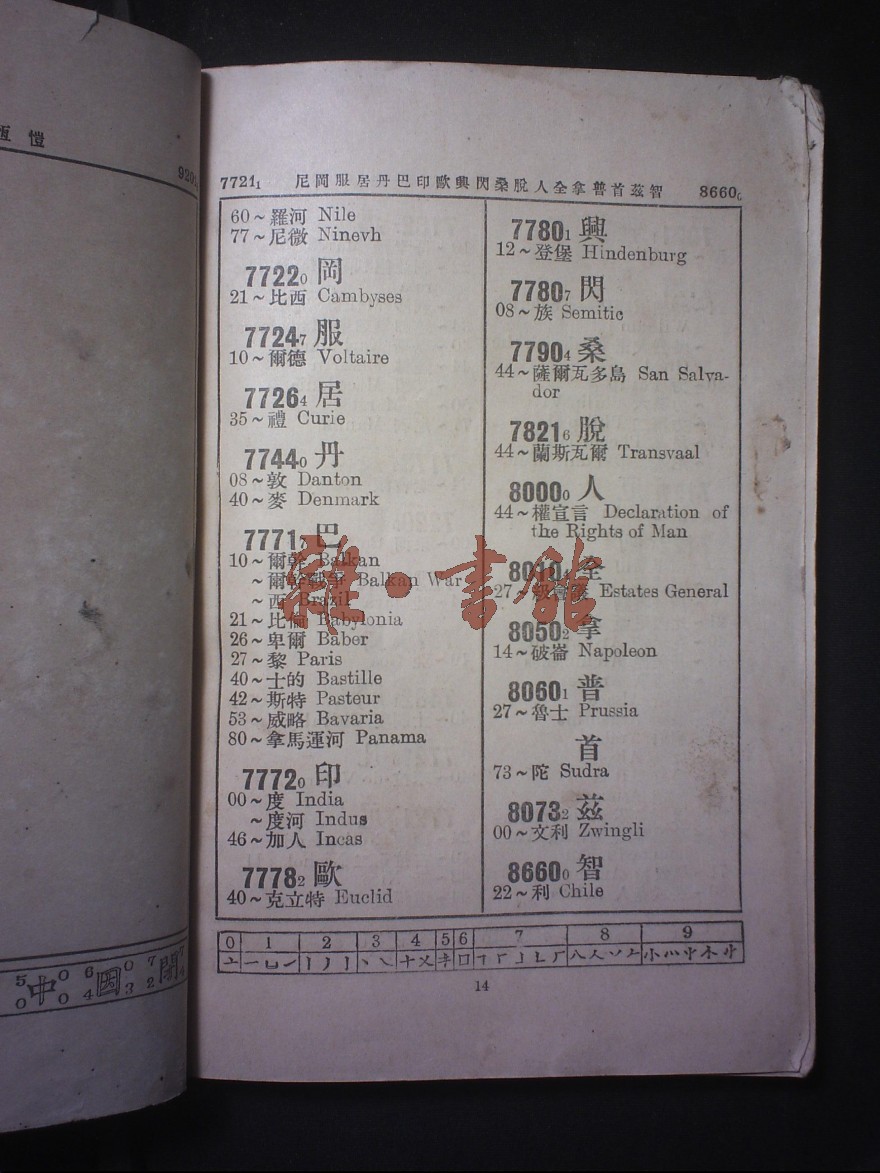 愷
920
7721₁ 尼岡服居丹巴印歐興閃桑脫人全拿普首茲智 8660₀
60～羅河 Nile
77～尼微 Ninevh
7722₀ 岡
21～比西 Cambyses
7724₇ 服
10～爾德 Voltaire
7726₄ 居
35～禮 Curie
7744₀ 丹
08～敦 Danton
40～麥 Denmark
7771₇ 巴
10～爾幹 Balkan
～爾幹戰爭 Balkan War
～西 Brazil
21～比倫 Babylonia
26～卑爾 Baber
27～黎 Paris
40～士的 Bastille
42～斯特 Pasteur
53～威略 Bavaria
80～拿馬運河 Panama
7772₀ 印
00～度 India
～度河 Indus
46～加人 Incas
7778₂ 歐
40～克立特 Euclid
7780₁ 興
12～登堡 Hindenburg
7780₇ 閃
08～族 Semitic
7790₄ 桑
44～薩爾瓦多島 San Salva-
dor
7821₆ 脫
44～蘭斯瓦爾 Transvaal
8000₀ 人
44～權宣言 Declaration of
the Rights of Man
8010₄ 全
27～級會議 Estates General
8050₂ 拿
14～破崙 Napoleon
8060₁ 普
27～魯士 Prussia
首
73～陀 Sudra
8073₂ 茲
00～文利 Zwingli
8660₀ 智
22～利 Chile
0 1 2 3 4 5 6 7 8 9
14
雜·書館